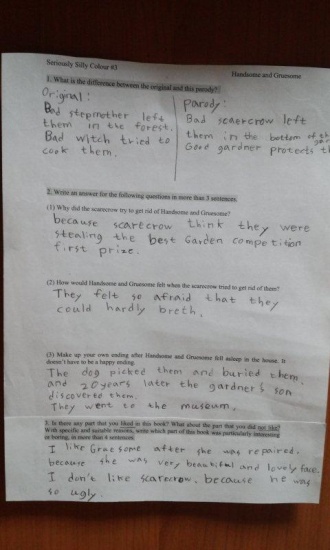 Seriously Silly Colour #3
Handsome and Gruesome
1. What is the difference between the original and this parody?
Original:
Bad stepmother left
them in the forest.
Bad witch tried to
cook them.
parody:
Bad scaercrow left
them in the bottom of the
Good gardner protects th
2. Write an answer for the following questions in more than 3 sentences.
(1) Why did the scarecrow try to get rid of Handsome and Gruesome?
because scarecrow think they were
stealing the best Garden competition
first prize.
(2) How would Handsome and Gruesome felt when the scarecrow tried to get rid of them?
They felt so afraid that they
could hardly breth.
(3) Make up your own ending after Handsome and Gruesome fell asleep in the house. It
doesn't have to be a happy ending.
The dog picked them and buried them.
and 20years later the gardner's son
discoverto them.
They went to the museum.
3. Is there any part that you liked in this book? What about the part that you did not like?
With specific and suitable reasons, write which part of this book was particularly interesting
or boring, in more than 4 sentences.
I like Gruesome after she was repaired.
because she was very beautiful and lovely face.
I don't like scarecrow. because he was
so ugly.